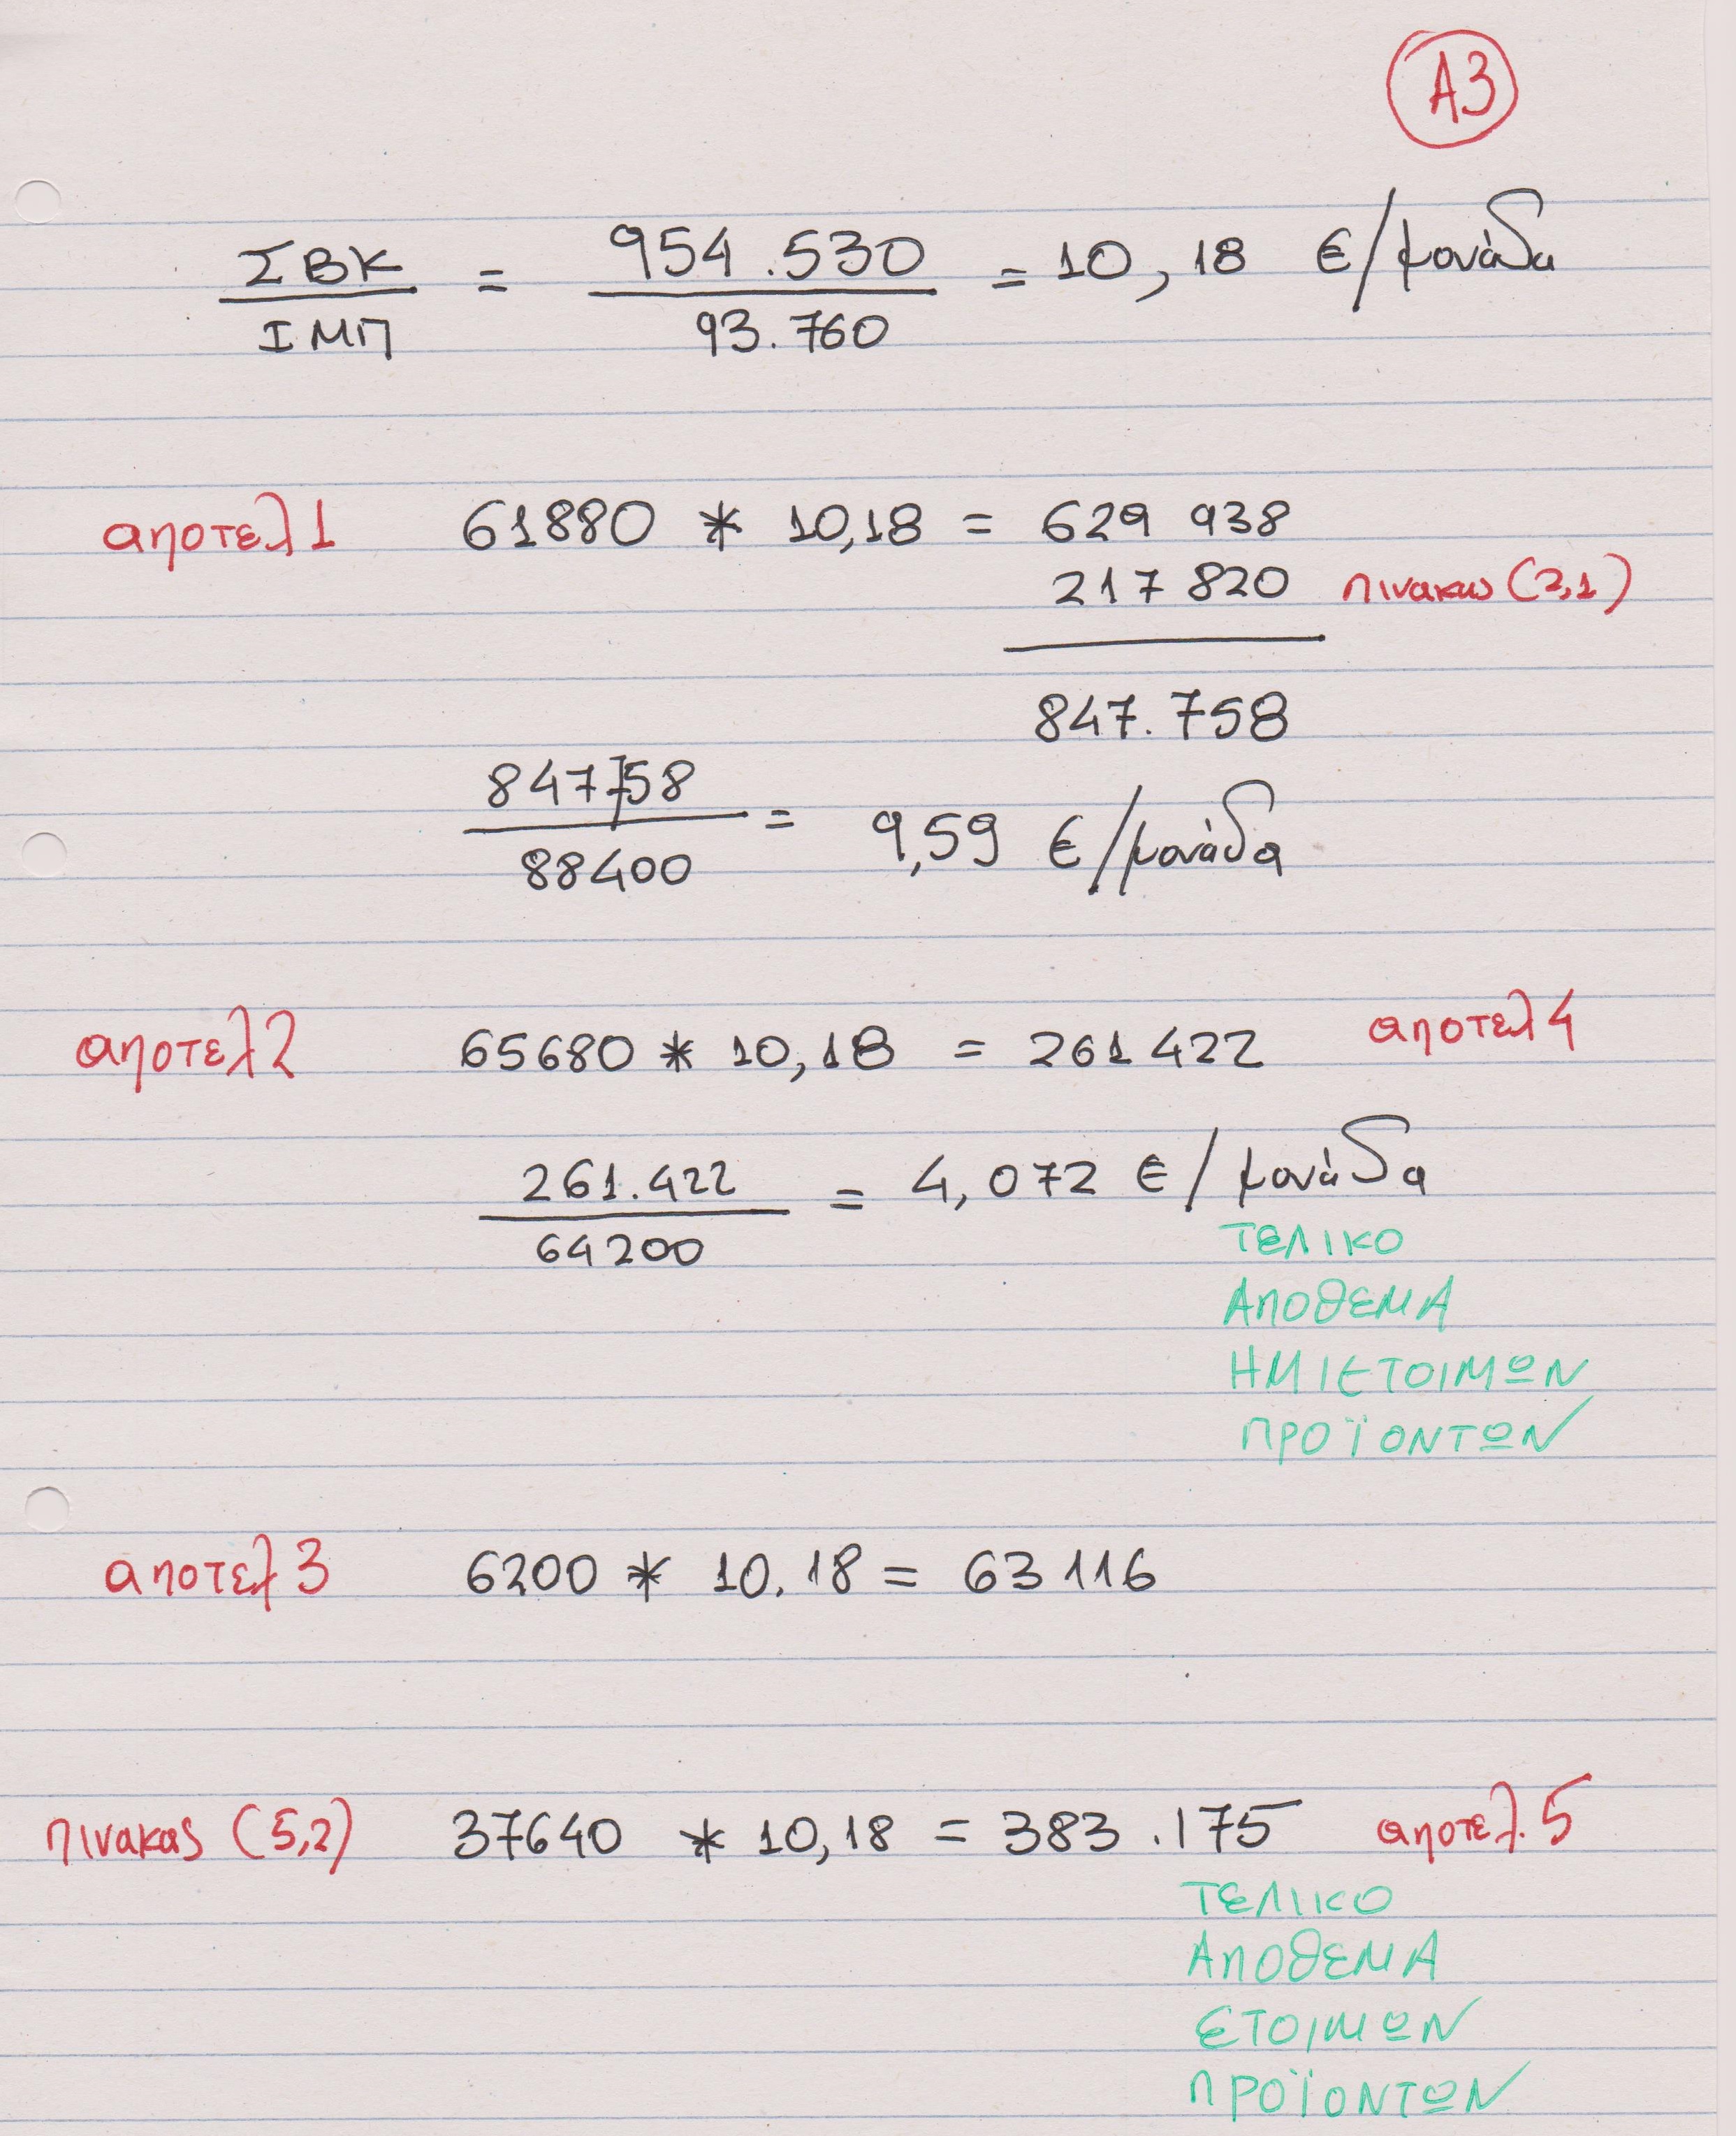 Α3
ΣΒΚ/ΙΜΠ = 954.530/93.760 = 10,18 €/μονάδα
αποτελ 1 61880 * 10,18 = 629 938
217 820 πινακας (2,1)
847.758
847758/88400 = 9,59 €/μονάδα
αποτελ 2 65680 * 10,18 = 261 422 αποτελ 4
261.422/64200 = 4,072 €/μονάδα
ΤΕΛΙΚΟ
ΑΠΟΘΕΜΑ
ΗΜΙΕΤΟΙΜΩΝ
ΠΡΟΪΟΝΤΩΝ
αποτελ 3 6200 * 10.18 = 63 116
πινακας (5,2) 37640 * 10,18 = 383.175 αποτελ. 5
ΤΕΛΙΚΟ
ΑΠΟΘΕΜΑ
ΕΤΟΙΜΩΝ
ΠΡΟΪΟΝΤΩΝ